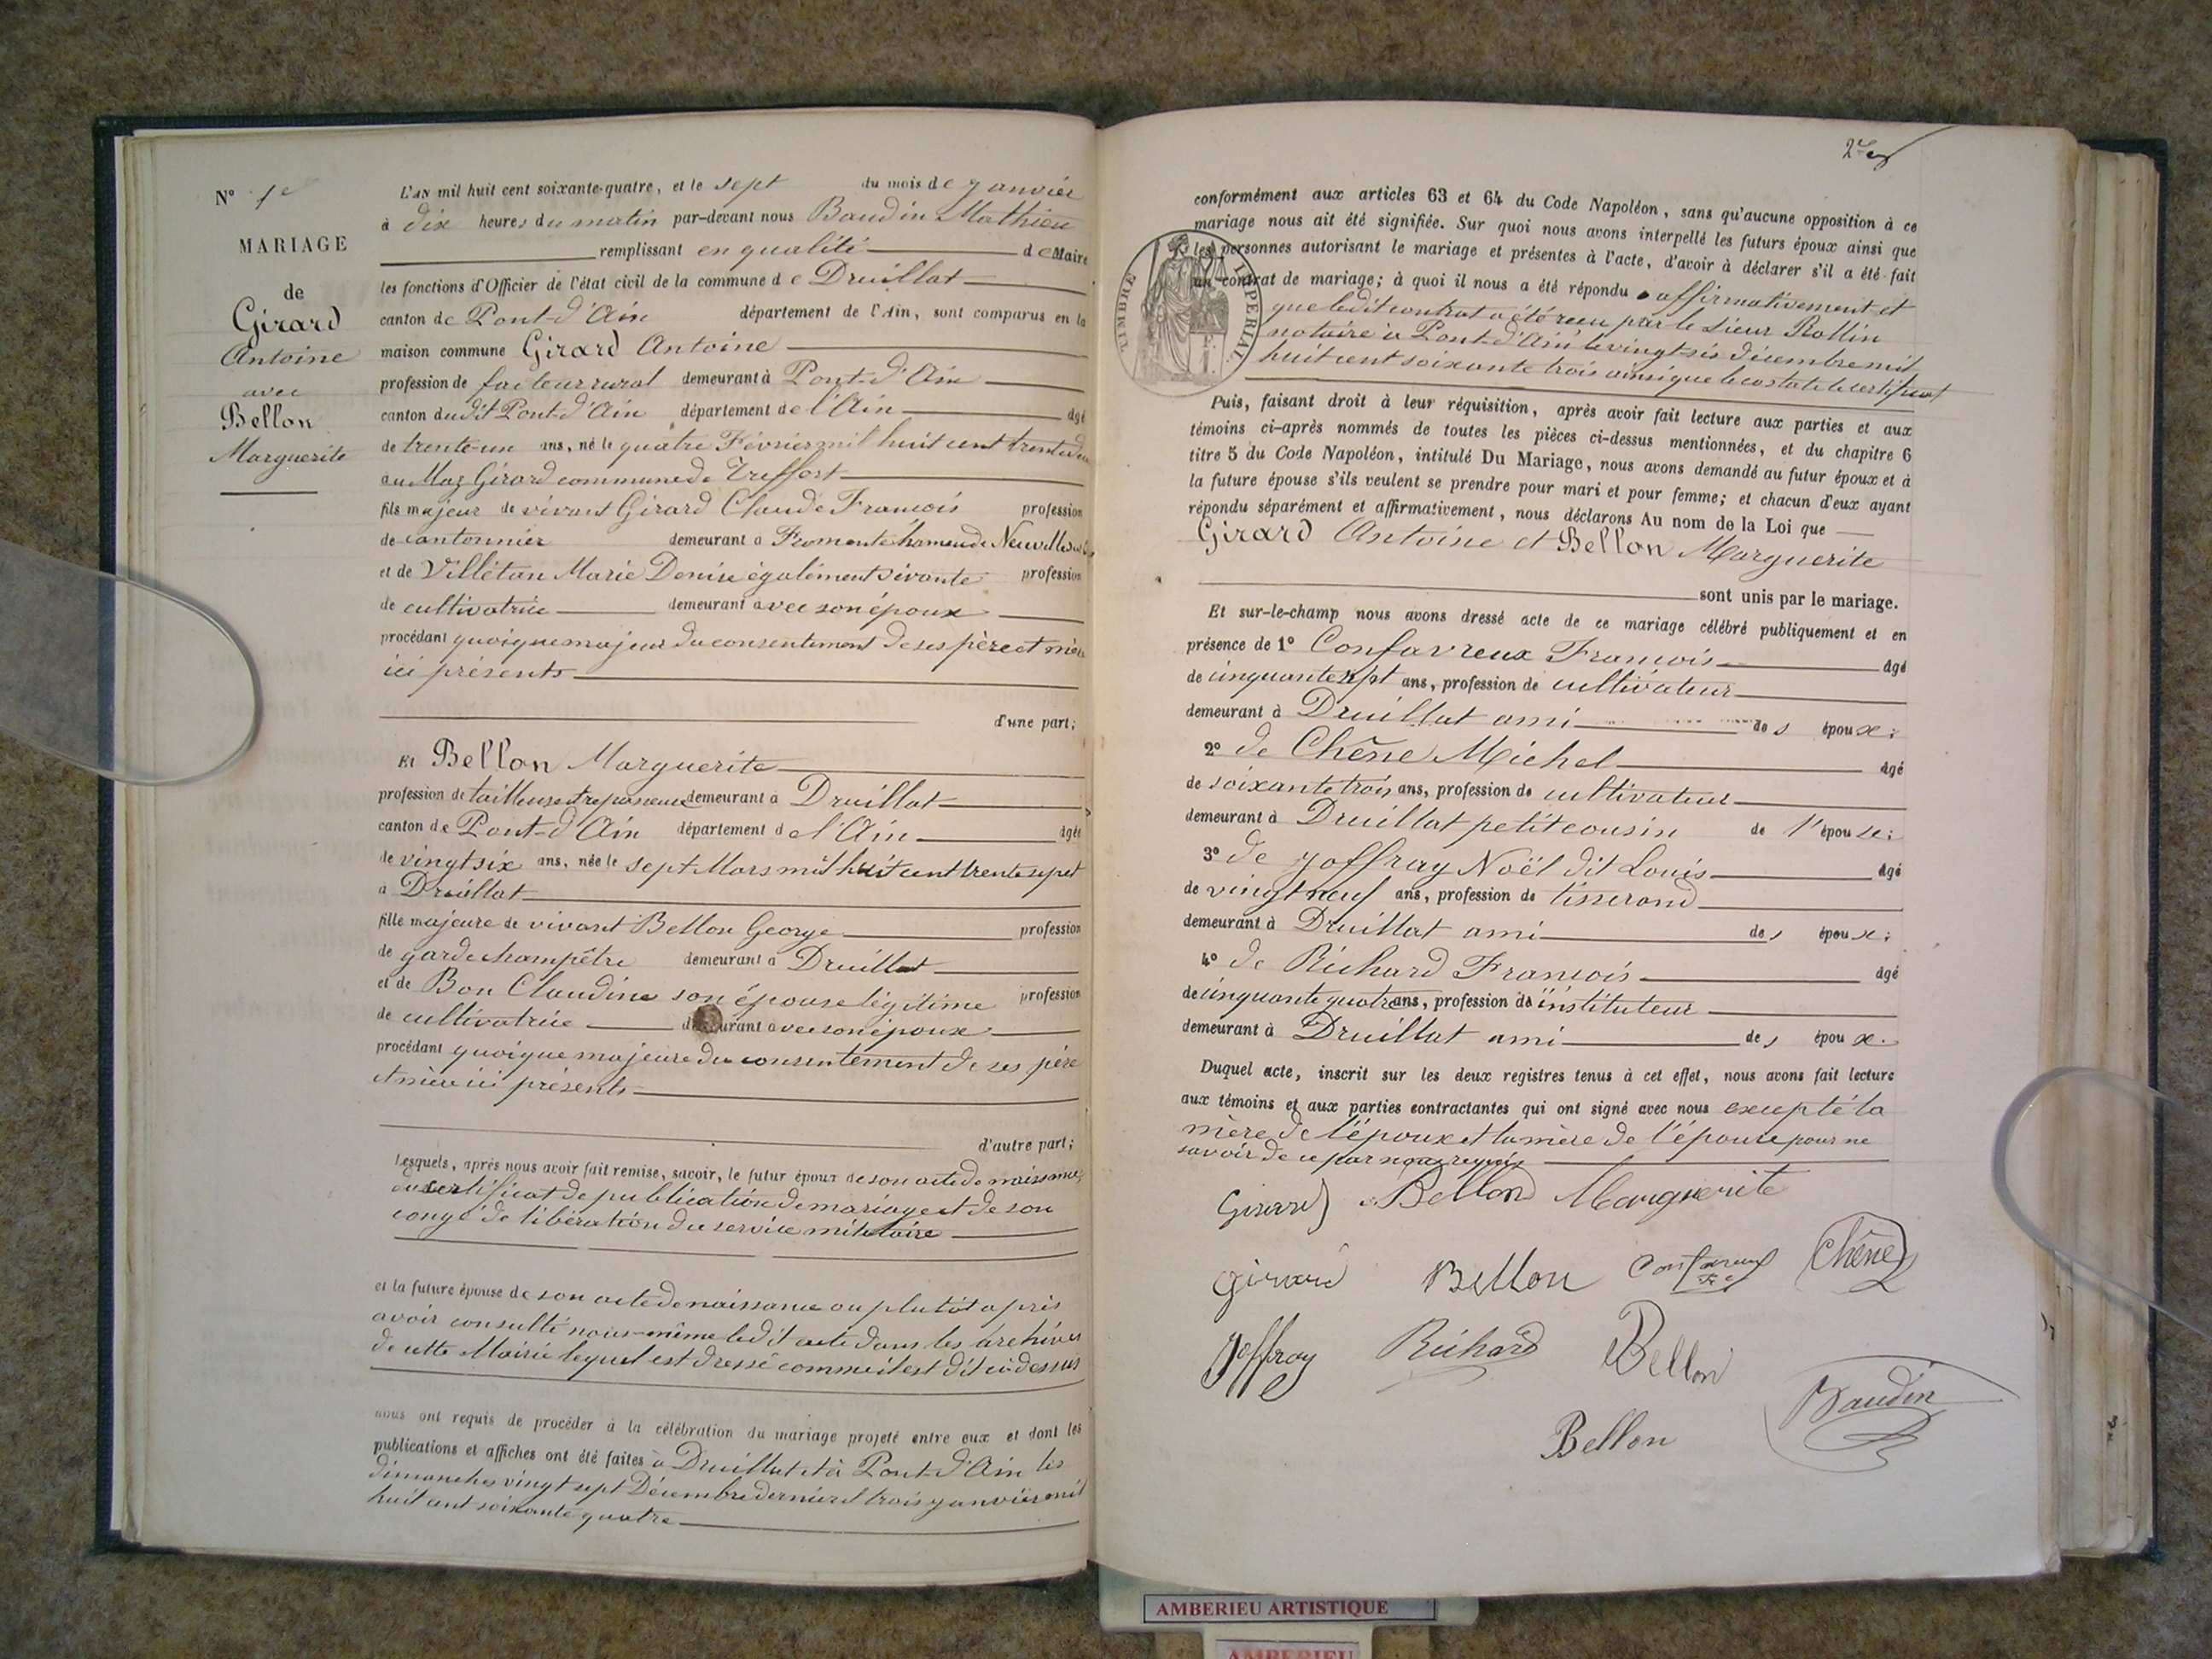 N° 1er
MARIAGE
de
Girard
Antoine
avec
Bellon
Marguerite
L'AN mil huit cent soixante-quatre, et le sept du mois de Janvier
à dix heures du matin par-devant nous Baudin Mathieu
remplissant en qualité de Maire
les fonctions d'Officier de l'état civil de la commune de Druillat
canton de Pont-d'Ain département de l'Ain, sont comparus en la
maison commune Girard Antoine
profession de facteur rural demeurant à Pont-d'Ain
canton dudit Pont-d'Ain département de l'Ain âgé
de trente-un ans, né le quatre Février mil huit cent trente deux
au Maz Girard commune de Treffort
fils majeur de vivant Girard Claude François profession
de cantonnier demeurant à Fromente hameau de Neuville
et de Villetan Marie Denise également vivante profession
de cultivatrice demeurant avec son époux
procédant quoique majeur du consentement de ses père et mère
ici présents
d'une part;
Et Bellon Marguerite
profession de tailleuse et repasseuse demeurant à Druillat
canton de Pont-d'Ain département de l'Ain âgée
de vingt six ans, née le sept Mars mil huit cent trente sept
à Druillat
fille majeure de vivant Bellon George profession
de garde champêtre demeurant à Druillat
et de Bon Claudine son épouse légitime profession
de cultivatrice demeurant avec son époux
procédant quoique majeure du consentement de ses père
et mère ici présents
d'autre part;
Lesquels, après nous avoir fait remise, savoir, le futur époux de son acte de naissance,
du certificat de publication de mariage et de son
congé de libération du service militaire
et la future épouse de son acte de naissance ou plutôt après
avoir consulté nous-même ledit acte dans les archives
de cette Mairie lequel est dressé comme il est dit ci-dessus
nous ont requis de procéder à la célébration du mariage projeté entre eux et dont les
publications et affiches ont été faites à Druillat et à Pont-d'Ain les
dimanches vingt sept Décembre dernier et trois Janvier mil
huit cent soixante quatre
conformément aux articles 63 et 64 du Code Napoléon, sans qu'aucune opposition à ce
mariage nous ait été signifiée. Sur quoi nous avons interpellé les futurs époux ainsi que
les personnes autorisant le mariage et présentes à l'acte, d'avoir à déclarer s'il a été fait
un contrat de mariage; à quoi il nous a été répondu affirmativement et
que ledit contrat a été reçu par le sieur Rollin
notaire à Pont-d'Ain le vingt six décembre mil
huit cent soixante trois ainsi que le constate le certificat
TIMBRE IMPÉRIAL
Puis, faisant droit à leur réquisition, après avoir fait lecture aux parties et aux
témoins ci-après nommés de toutes les pièces ci-dessus mentionnées, et du chapitre 6
titre 5 du Code Napoléon, intitulé Du Mariage, nous avons demandé au futur époux et à
la future épouse s'ils veulent se prendre pour mari et pour femme; et chacun d'eux ayant
répondu séparément et affirmativement, nous déclarons Au nom de la Loi que
Girard Antoine et Bellon Marguerite
sont unis par le mariage.
Et sur-le-champ nous avons dressé acte de ce mariage célébré publiquement et en
présence de 1° Confavreux François âgé
de cinquante sept ans, profession de cultivateur
demeurant à Druillat ami des époux;
2° de Chêne Michel âgé
de soixante trois ans, profession de cultivateur
demeurant à Druillat petit cousin de l'épouse;
3° de Joffray Noël dit Louis âgé
de vingt neuf ans, profession de tisserand
demeurant à Druillat ami des époux;
4° de Richard François âgé
de cinquante quatre ans, profession de instituteur
demeurant à Druillat ami des époux.
Duquel acte, inscrit sur les deux registres tenus à cet effet, nous avons fait lecture
aux témoins et aux parties contractantes qui ont signé avec nous excepté la
mère de l'époux et la mère de l'épouse pour ne
savoir de ce par nous requis
Girard Bellon Marguerite
Girard Bellon Confavreux Chêne
Joffray Richard Bellon
Baudin
Bellon
AMBERIEU ARTISTIQUE
AMBERIEU